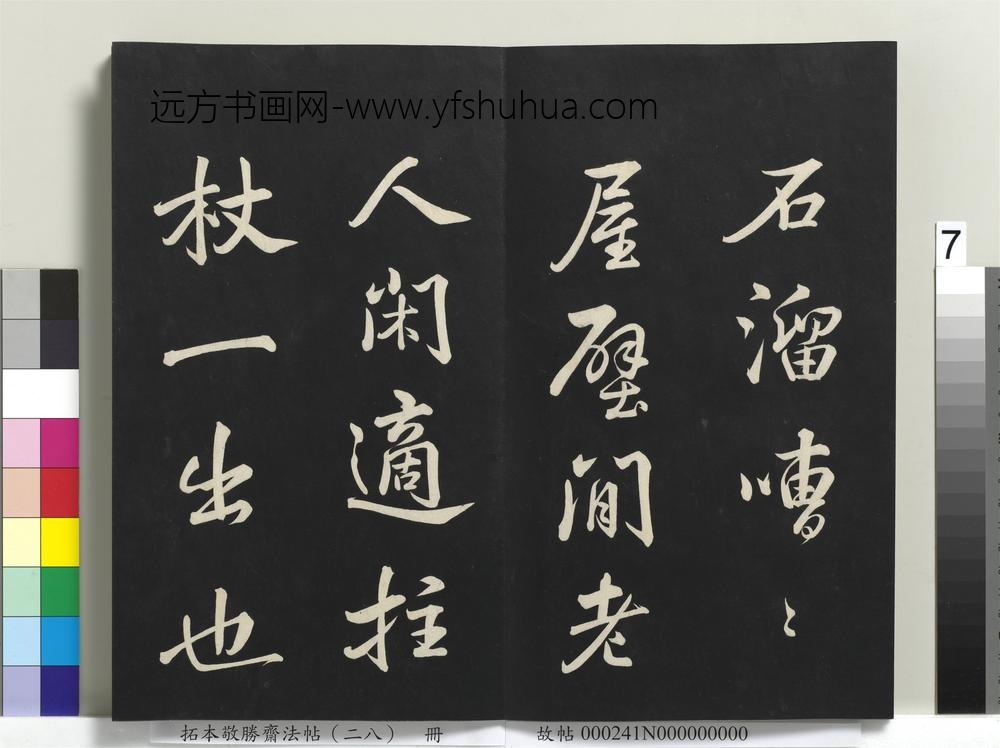 远方书画网-www.yfshuhua.com
石溜嘈〻
屋壁間老
人閑適拄
杖一出也
7
拓本敬勝齋法帖（二八） 冊
故帖 000241N000000000